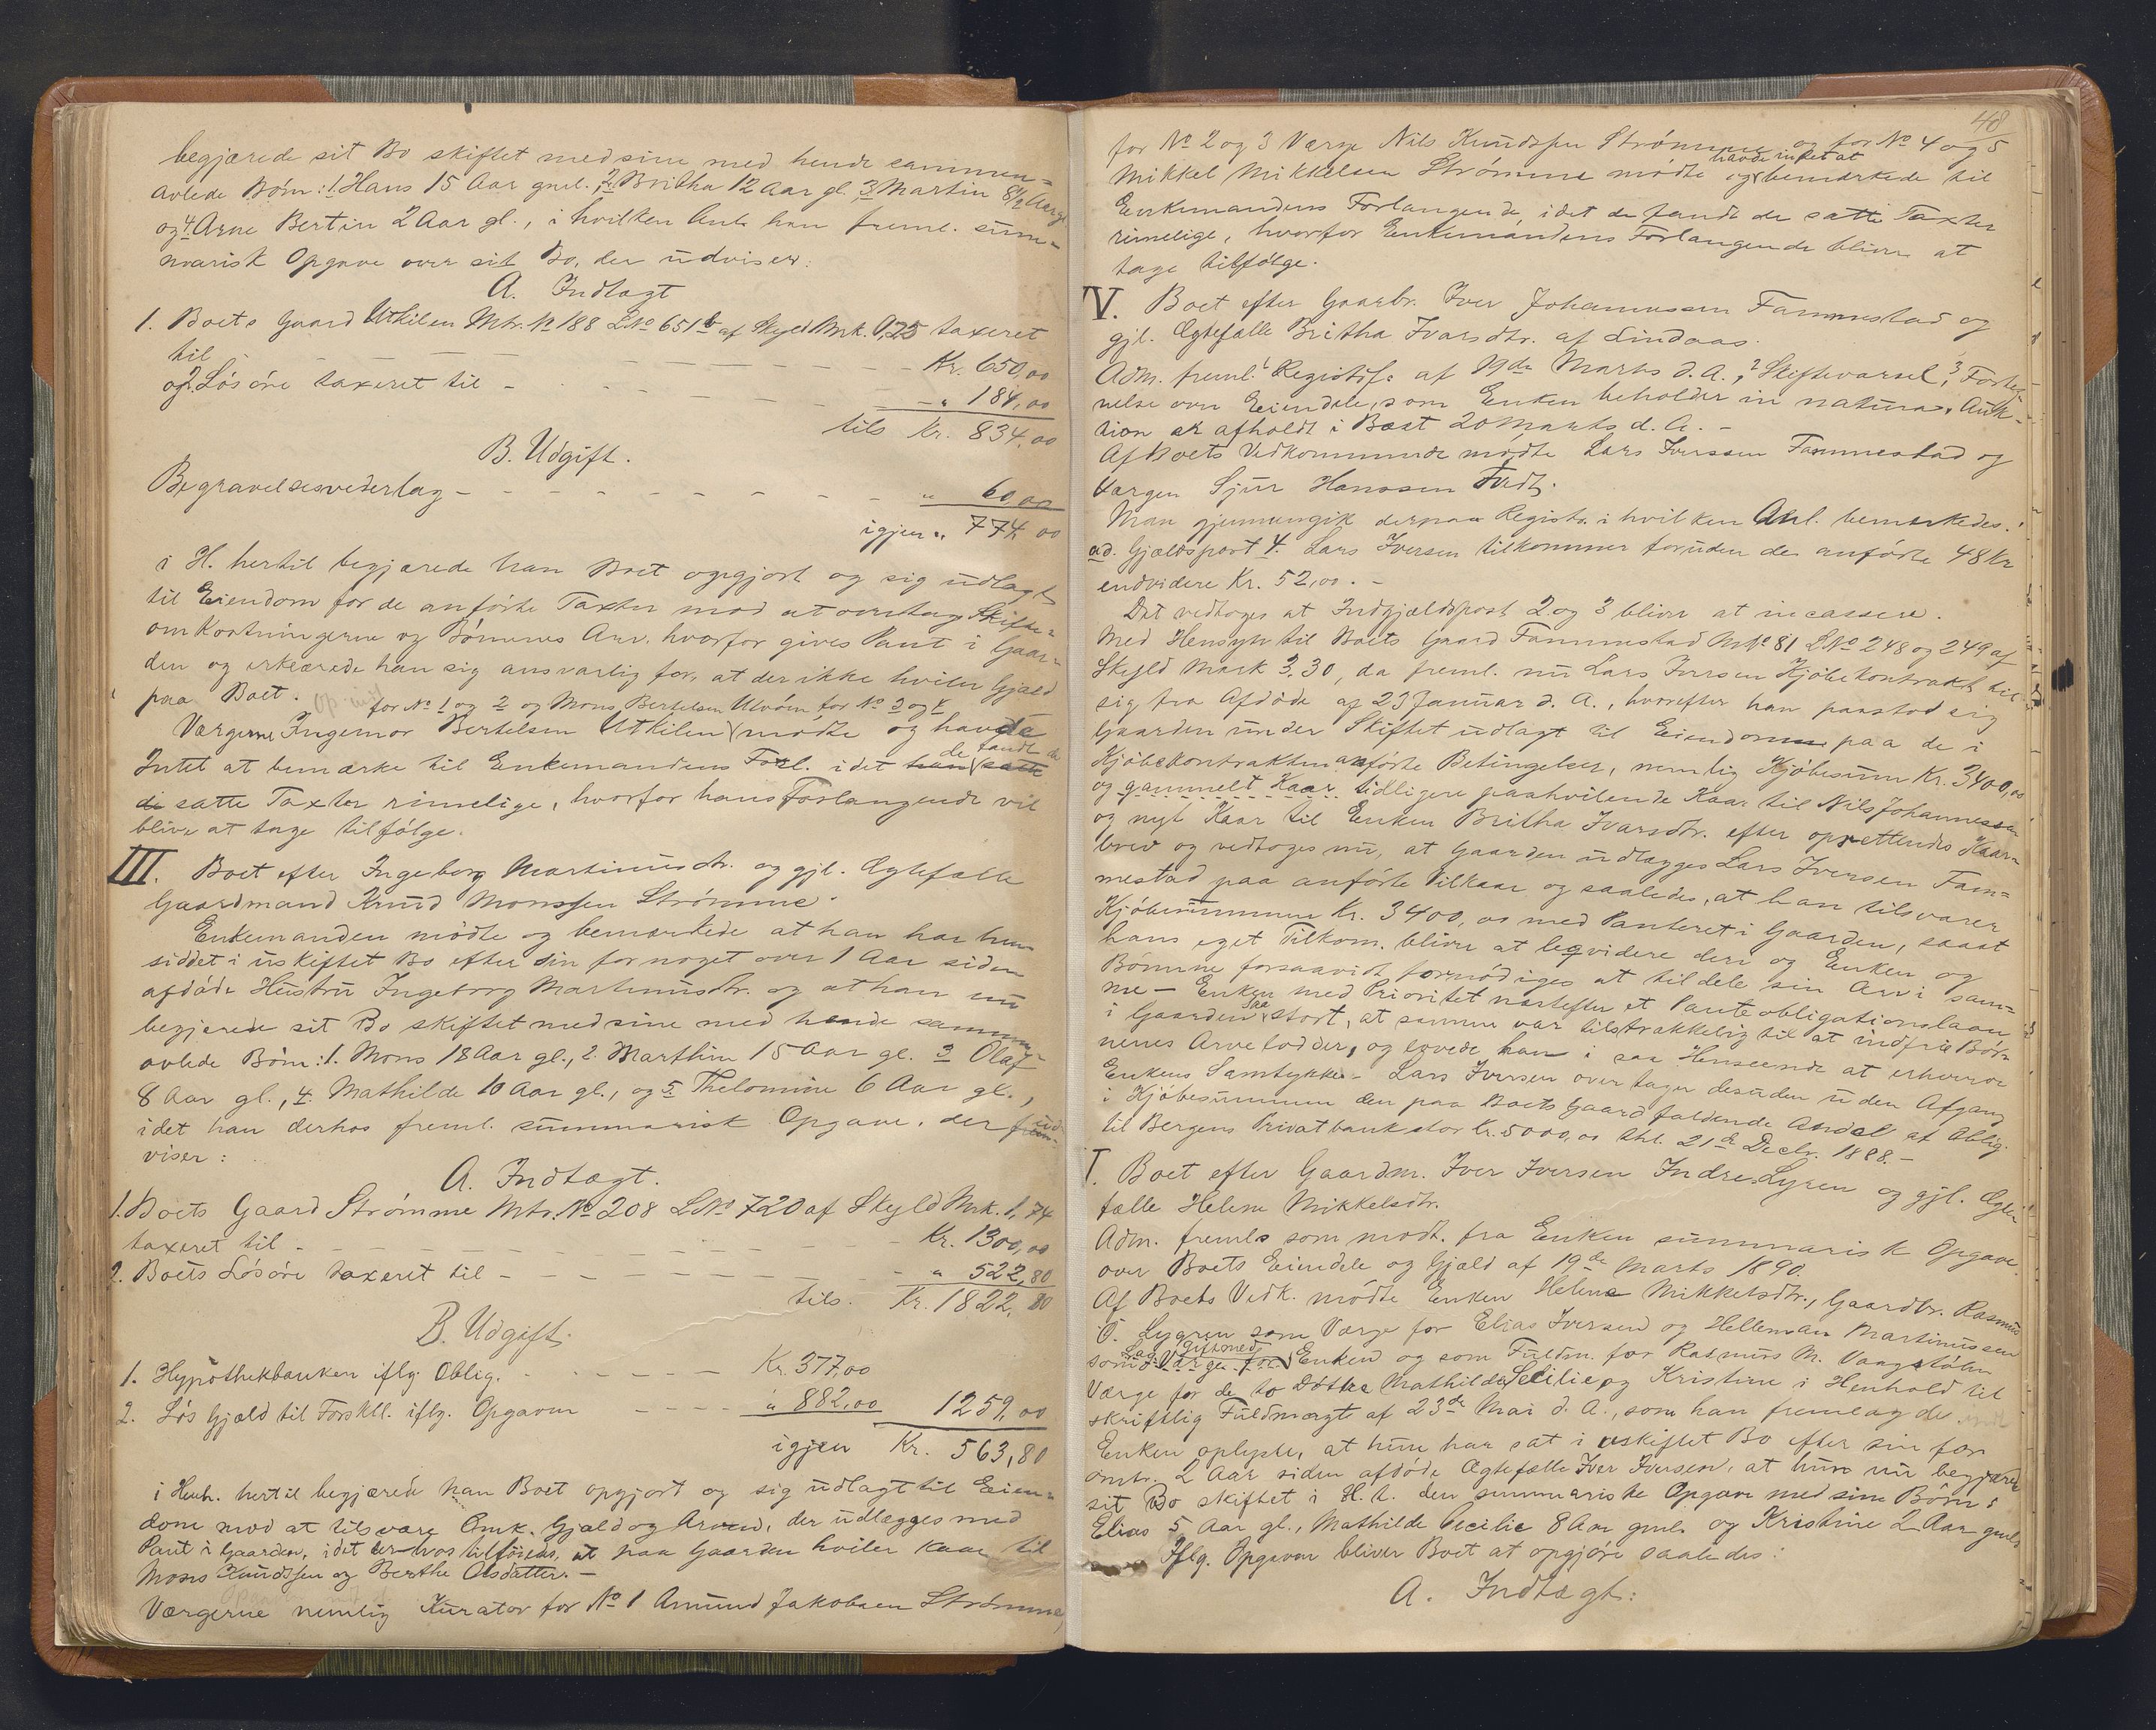 begjærede sit Bo skiftet med sine med hende sammen=
avlede Börn: 1. Hans 15 Aar gml. 2. Britha 12 Aar gl. 3 Martin 8 1/2 Aar gl
og 4. Arne Bertin 2 Aar gl., i hvilken Anl. han freml. sum=
marisk Opgave over sit Bo, der udviser:
A. Indtægt
1. Boets Gaard Utkilen Mtr. N 188 LNo 651 b af Skyld Mrk. 0,75 taxeret
til - - - - Kr. 650,00
og 2. Lösöre taxeret til - - - - " 184,00
tils Kr. 834,00
B. Udgift.
Begravelsesvederlag - - - - " 60,00
igjen " 774,00
i H. hertil begjærede han Boet opgjort og sig udlagt
til Eiendom for de anförte Taxter mod at overtage Skifte=
omkostningerne og Börnenes Arv, hvorfor gives Pant i Gaar=
den og erklærede han sig ansvarlig for, at der ikke hviler Gjæld
paa Boet.
for No 1 og 2 og Mons Bertelsen Utvöen for No 3 og 4
Værgerne Ingemor Bertelsen Utkilen mödte og havde
de fandt de
Intet at bemærke til Enkemandens Forl. idet han satte
di satte Taxter rimelige, hvorfor hans Forlangende vil
blive at tage tilfölge.
III. Boet efter Ingeborg Martinusdtr. og gjl. Ægtefælle
Gaardmand Knud Monssen Strömme.
Enkemanden mödte og bemærkede at han har hen=
siddet i uskiftet Bo efter sin for noget over 1 Aar siden
afdöde Hustru Ingeborg Martinusdtr. og at han nu
begjærede sit Bo skiftet med sine med hende sammen=
avlede Börn: 1. Mons 18 Aar gl., 2. Marthin 15 Aar gl. 3 Olaf
8 Aar gl., 4. Mathilde 10 Aar gl., og 5 Thelomine 6 Aar gl.,
idet han derhos freml. summarisk Opgave, der ud=
viser:
A. Indtægt.
1. Boets Gaard Strömme Mtr. No 208 LNo 720 af Skyld Mrk. 1,74
taxeret til - - - - Kr. 1300,00
2. Boets Lösöre taxeret til - - - - " 522,80
tils. Kr. 1822,80
B. Udgift.
1. Hypothekbanken iflg. Oblig. - - - - Kr. 377,00
2. Lös Gjæld til Forskll. iflg. Opgaven - - - - " 882,00 1259,00
igjen Kr. 563,80
i Henh. hertil begjærede han Boet opgjort og sig udlagt til Eien=
dom mod at tilsvare Omk. Gjæld og Arven, der udlægges med
Pant i Gaarden, idet derhos tilföiedes, at paa Gaarden hviler Kaar til
Mons Knudssen og Berthe Olsdatter. -
Værgerne nemlig Kurator for No 1 Amund Jakobsen Strömme,
48
for No 2 og 3 Værge Nils Knudssen Strömme og for No 4 og 5
havde intet at
Mikkel Mikkelsen Strömme mödte og bemærkede til
Enkemandens Forlangende, idet de fandt de satte Taxter
rimelige, hvorfor Enkemandens Forlangende bliver at
tage tilfölge.
V. Boet efter Gaardbr. Iver Johannessen Fammestad og
gjl. Ægtefælle Britha Ivarsdtr. af Lindaas.
Adm. freml. 1 Registrf. af 19de Marts d. A., 2 Skiftevarsel, 3 Forteg=
nelse over Eiendele, som Enken beholder in natura. Auk=
tion er afholdt i Boet 20 Marts d. A. -
Af Boets Vedkommende mödte Lars Iverssen Fammestad og
Værgen Sjur Hanssen Fedt.
Man gjennemgik derpaa Registr. i hvilken Anl. bemærkedes:
ad. Gjældspost 4. Lars Iversen tilkommer foruden de anförte 48 Kr
endvidere Kr. 52,00. -
Det vedtoges at Indgjældspost 2 og 3 bliver at incassere.
Med Hensyn til Boets Gaard Fammestad MNo 81 LNo 248 og 249 af
Skyld Mark 3.30, da freml. nu Lars Iversen Kjöbekontrakt til
sig fra Afdöde af 23 Januar d. A., hvorefter han paastod sig
Gaarden under Skiftet udlagt til Eiendom paa de i
Kjöbekontrakten anförte Betingelser, nemlig Kjöbesum Kr. 3400,00
og gammelt Kaar tidligere paahvilende Kaar til Nils Johannessen
og nyt Kaar til Enken Britha Ivarsdtr. efter oprettendes Kaar=
brev og vedtoges nu, at Gaarden udlægges Lars Iversen Fam=
mestad paa anförte Vilkaar og saaledes, at han tilsvarer
Kjöbesummen Kr. 3400,00 med Panteret i Gaarden, saast
hans eget Tilkom. bliver at leqvidere deri og Enken og
Börnene forsaavidt fornödiges at tildele sin Arv i sam=
me - Enken med Prioritet nærefter et Panteobligationslaan
saa
i Gaarden stort, at samme var tilstrækkelig til at indfrie Bör=
nenes Arvelodder, og lovede han i saa Henseende at erhverve
Enkens Samtykke. - Lars Iversen overtager desuden uden Afgang
i Kjöbesummen den paa Boets Gaard faldende Andel af Oblig.
til Bergens Privatbank stor Kr. 5000,00 Thl. 21de Decbr. 1888. -
I. Boet efter Gaardm. Iver Iversen Indre Lygren og gjl. Ægte=
fælle Helene Mikkelsdtr.
Adm. fremls som modt. fra Enken summarisk Opgave
over Boets Eiendele og Gjæld af 19de Marts 1890.
Af Boets Vedk. mödte Enken Helene Mikkelsdtr., Gaardbr. Rasmus
O. Lygren som Værge for Elias Iversen og Helleman Martinussen
Lag giftsmed
som Værge for Enken og som Fuldm. for Rasmus M. Vaagstölen
Værge for de to Döttre Mathilde Cecilie og Kristine i Henhold til
skriftlig Fuldmagt af 23de Mai d. A., som han fremlagde
Enken oplyste, at hun har sat i uskiftet Bo efter sin for
omtr. 2 Aar siden afdöde Ægtefælle Iver Iversen, at hun nu begjærer
sit Bo skiftet i H. t. den summariske Opgave med sine Börn:
Elias 5 Aar gl., Mathilde Cecilie 8 Aar gml. og Kristine 2 Aar gml.
Iflg. Opgaven bliver Boet at opgjöre saaledes:
A. Indtægt: